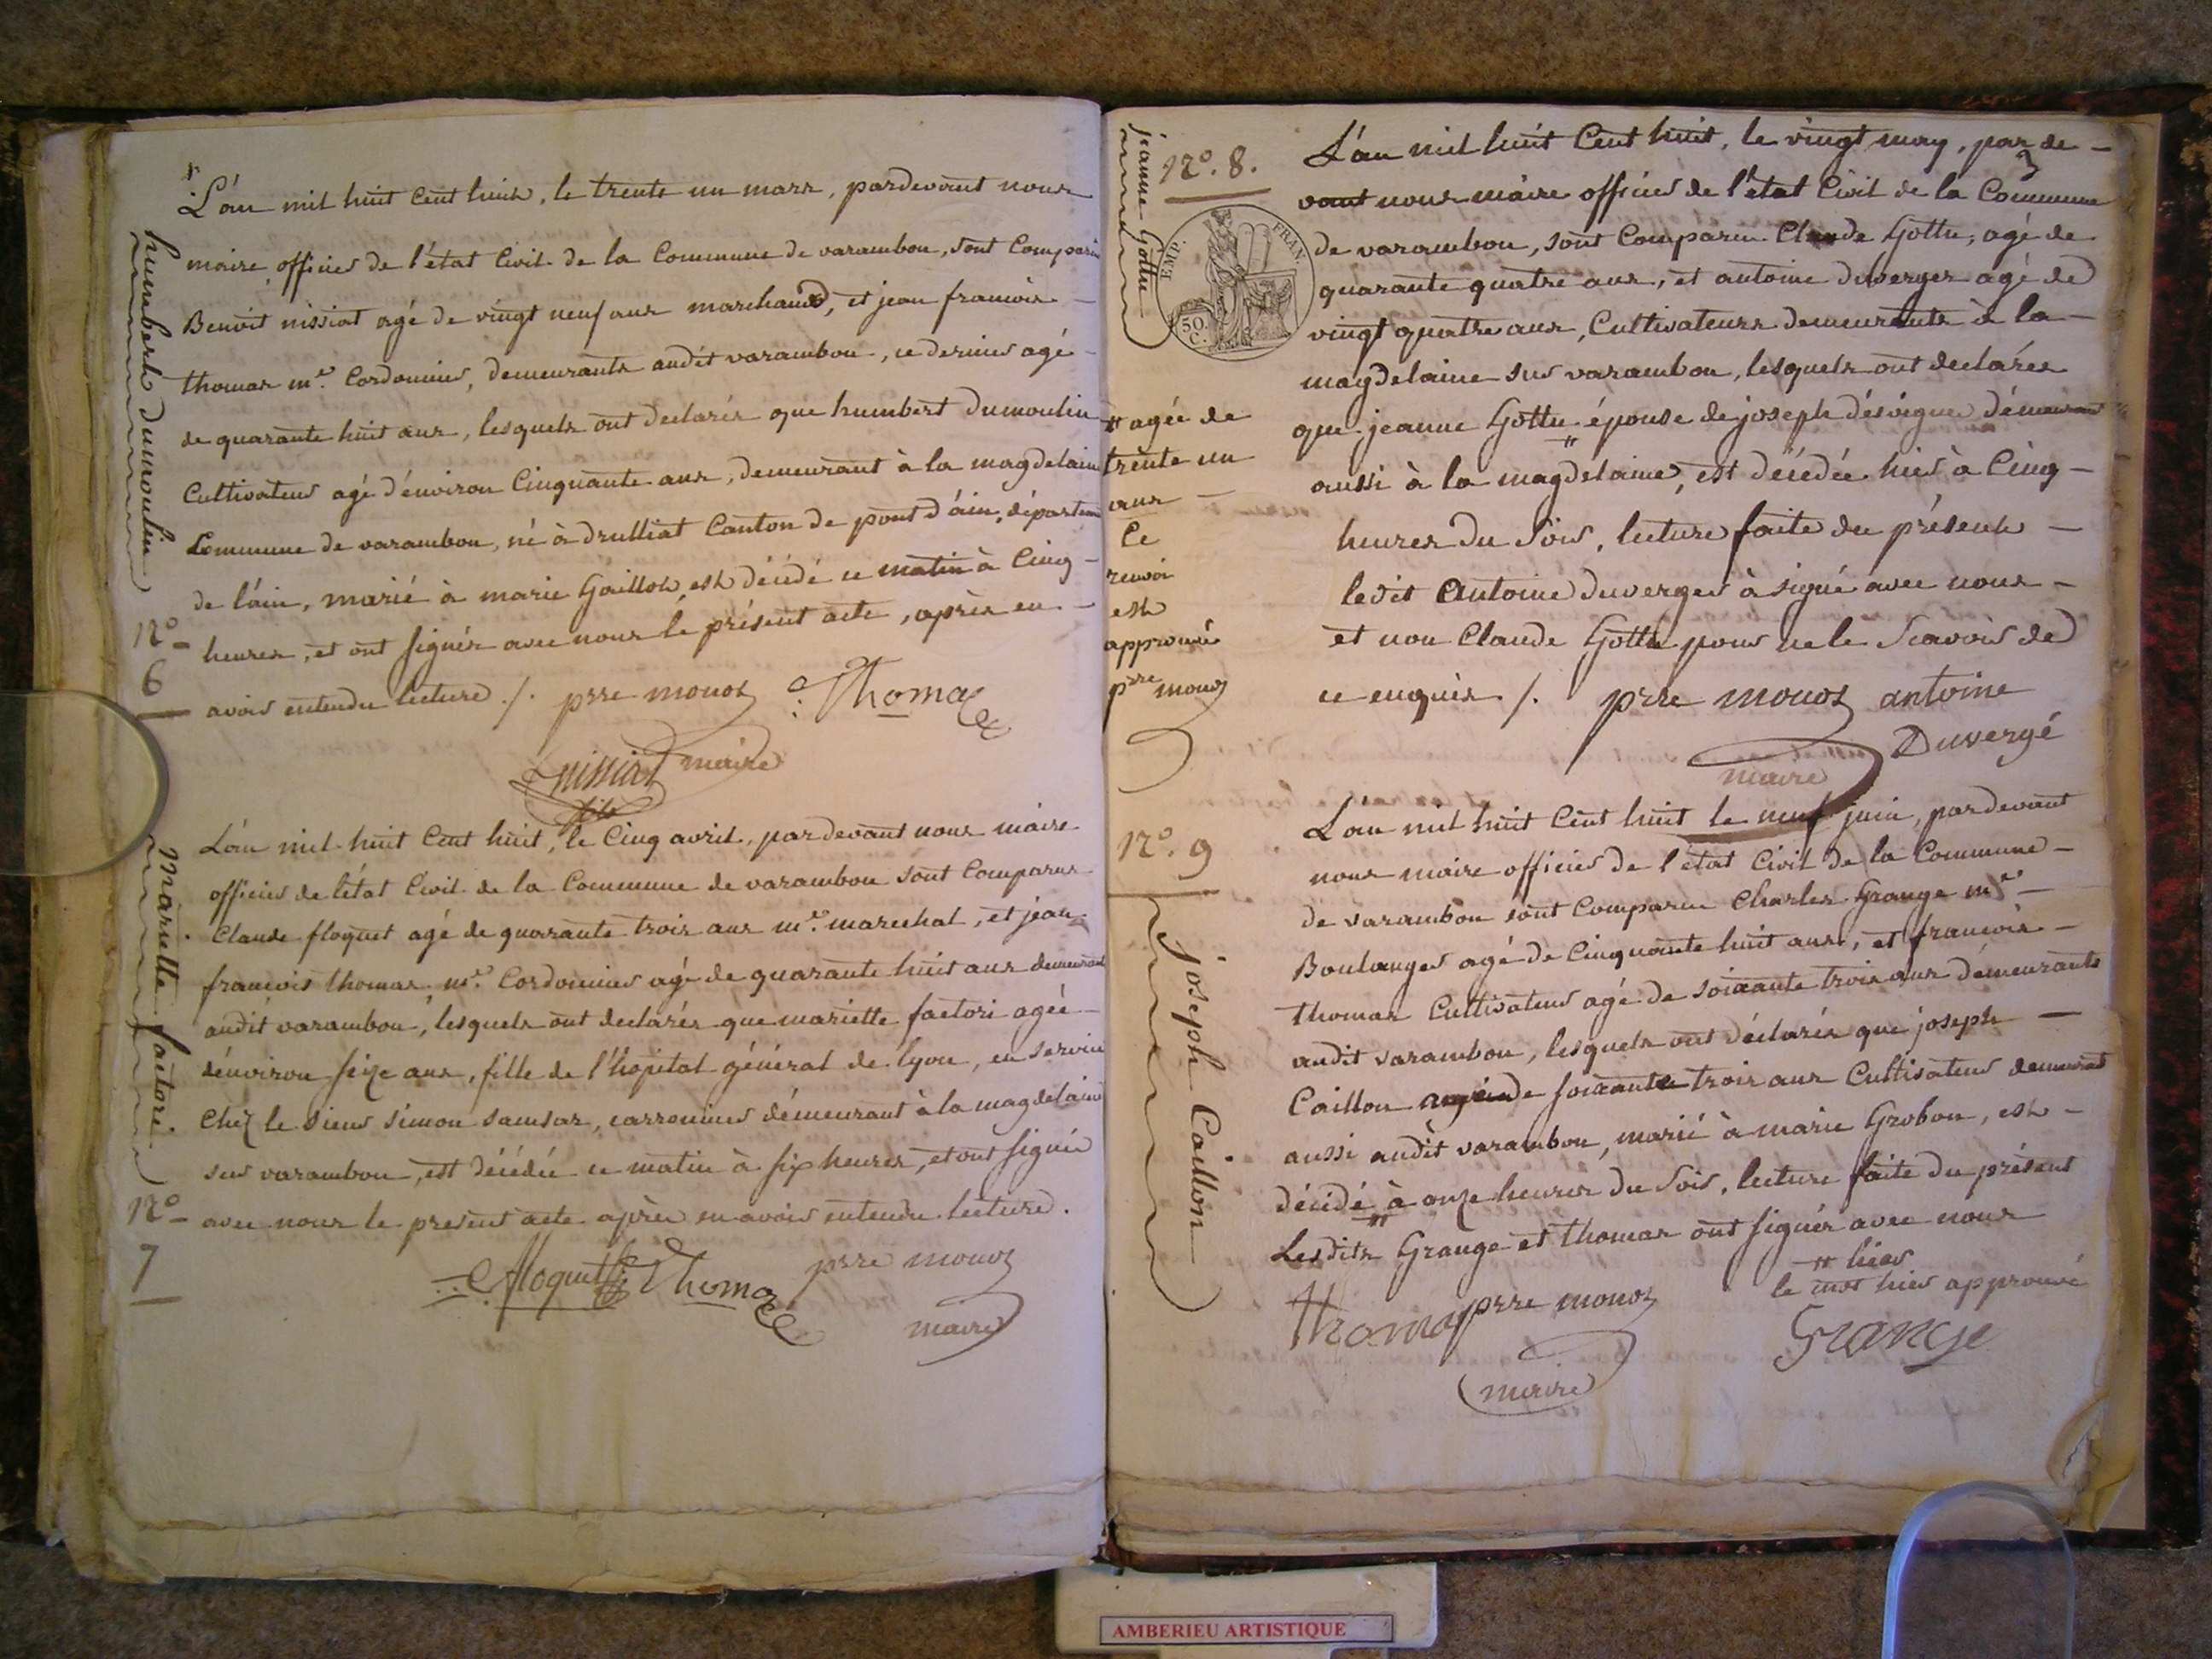 humbert dumoulin
N°
6
L'an mil huit Cent huit, le trente un mars, pardevant nous
maire officier de l'état Civil de la Commune de varambon, sont Comparu
Benoit nissiat agé de vingt neuf ans marchand, et jean francois
thomas m.e Cordonnier, demeurants audit varambon, ce dernier agé
de quarante huit ans, lesquels ont declarés que humbert Dumoulin
Cultivateur agé d'environ Cinquante ans, demeurant à la magdelaine
Commune de varambon, né à drulliat Canton de pont d'ain, départem
de l'ain, marié à marie Gaillon, est décédé ce matin à Cinq
heures, et ont signés avec nous le présent acte, après en
avoir entendu lecture ./. prre monoz Thomas
nissiat maire
fils
mariette factori
N°
7
L'an mil huit Cent huit, le Cinq avril, pardevant nous maire
officier de l'état Civil de la Commune de varambon sont Comparus
Claude floquet agé de quarante trois ans m.e marechal, et jean
francois thomas m.e Cordonnier agé de quarante huit ans demeurant
audit varambon, lesquels ont declarés que mariette factori agée
d'environ seize ans, fille de l'hopital général de lyon, en service
Chez le sieur simon demeurant à la magdelaine
sur varambon, est décédée ce matin à six heures, et ont signés
avec nous le present acte après en avoir entendu lecture.
floquet Thomas prre monoz
maire
jeanne Gottu
N°. 8.
EMP. FRAN.
50.
C.
L'an mil huit Cent huit, le vingt may, par de
vant nous maire officier de l'état Civil de la Commune
de varambon, sont Comparu Claude Gottu, agé de
quarante quatre ans, et antoine duverger agé de
vingt quatre ans, Cultivateurs demeurants à la
magdelaine sur varambon, lesquels ont declarés
que jeanne Gottu " épouse de joseph demeurant
aussi à la magdelaine, est décédée hier à Cinq
heures du Soir, lecture faite du présent
ledit antoine duverger à signé avec nous
et non Claude Gottu pour ne le Scavoir de
ce enquis ./. prre monoz antoine
Duvergé
maire
" agée de
trente un
ans
Ce
renvoi
est
approuvé
prre monoz
N°. 9
joseph Caillon
L'an mil huit Cent huit le neuf juin, pardevant
nous maire officier de l'état Civil de la Commune
de varambon sont Comparu Charles Grange m.e
Boulanger agé de Cinquante huit ans, et francois
thomas Cultivateur agé de soixante trois ans demeurants
audit varambon, lesquels ont déclarés que joseph
Caillon de soixante trois ans Cultivateur demeurant
aussi audit varambon, marié à marie Grobon, est
décédé " à onze heures du Soir, lecture faite du présent
Lesdits Grange et thomas ont signés avec nous
" hier
le mot hier approuvé
Thomas prre monoz
Grange
maire
AMBERIEU ARTISTIQUE